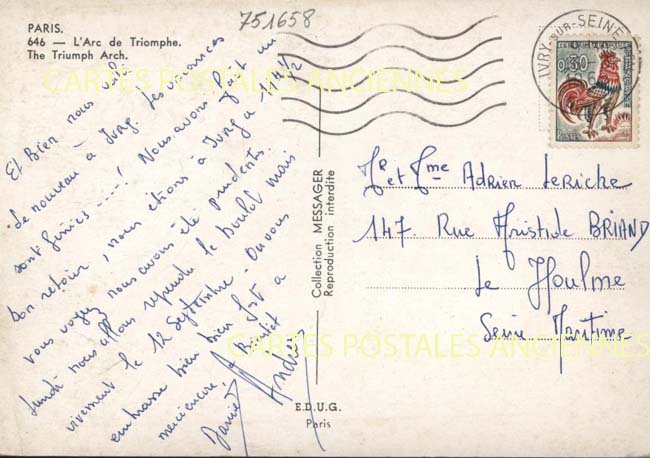 PARIS.
646 — L'Arc de Triomphe.
The Triumph Arch.
751658
Et Bien nous
de nouveau à Ivry. Les vacances
sont finies ----! Nous avons fait un
bon retour, nous étions à Ivry à 14H1/2
vous voyez nous avons été prudents.
Lundi nous allons reprendre le boulot mais
vivement le 12 Septembre. On vous
embrasse bien bien fort à
Daniel
André
Collection MESSAGER
Reproduction interdite
E.D.U.G.
Paris
IVRY-SUR-SEINE
0,30
POSTES
Mr et Mme Adrien Leriche
147 Rue Aristide BRIAND
Le Houlme
Seine Maritime
CARTES POSTALES ANCIENNES
CARTES POSTALES ANCIENNES